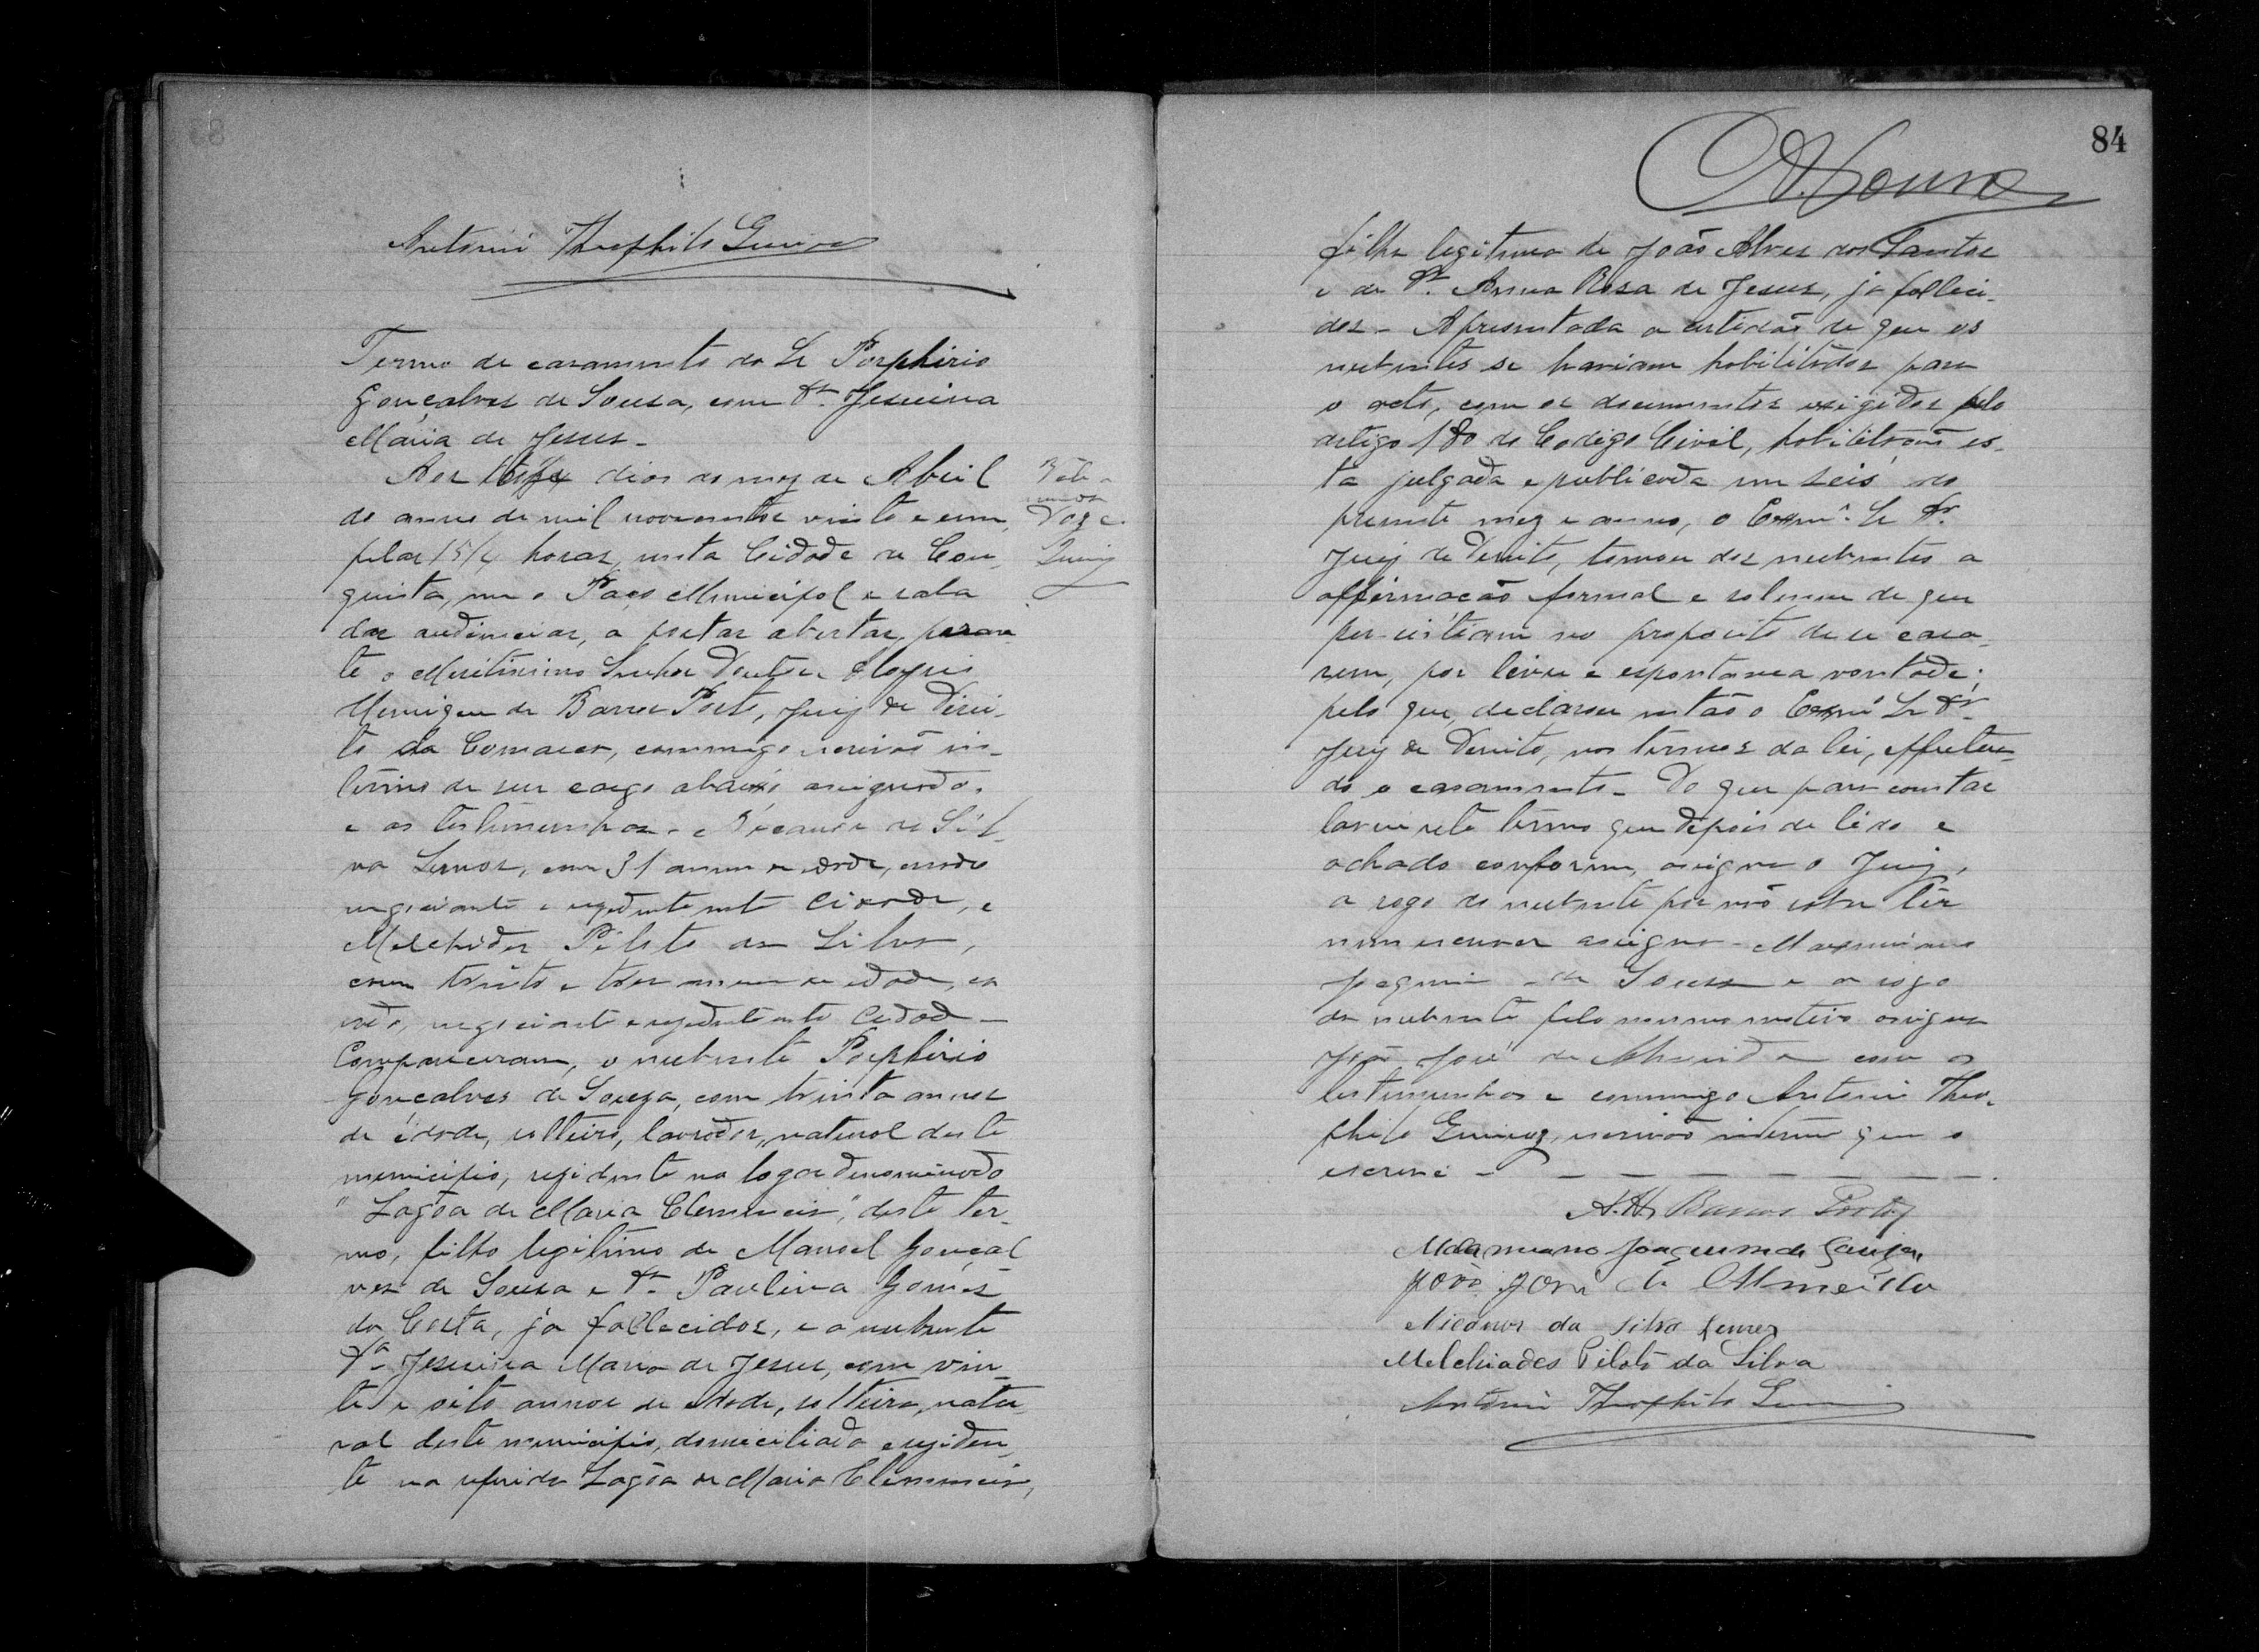 Antonio Theophilo
Termo de casamento do Sr Porphirio
Gonçalves de Sousa, com Da. Jesuina
Maria de Jesus -
Aos dias do mez de Abril
do anno de mil novecentos vinte e um,
pelas 15/4 horas, nesta Cidade de Con-
quista, em o Paço Municipal e sala
das audiencias, a portas abertas, peran-
te o Meritissimo Senhor Doutor
de Barros Porto, Juiz de Direi-
to da Comarca, commigo escrivão in-
terino de seu cargo abaixo assignado,
e as testemunhas - Nicanor da Sil-
va Lemos, com 31 annos de edade, casado
negociante e rezidente nesta Cidade, e
Melchiades Piloto da Silva,
com trinta e tres annos de edade, ca
sado, negociante e rezidente nesta Cidade -
Compareceram, o nubente Porphirio
Gonçalves de Souza, com trinta annos
de idade, solteiro, lavrador, natural deste
municipio, rezidente no logar denominado
"Lagôa de Maria Clemencia", deste ter-
mo, filho legitimo de Manoel Gonçal
ves de Sousa e Da. Paulina Gomes
da Costa, já fallecidos, e a nubente
Da. Jesuina Maria de Jesus, com vin-
te e oito annos de edade, solteira, natu-
ral deste municipio, domiciliada e reziden-
te na referida Lagôa de Maria Clemencia,
Dez e
84
filha legitima de João Alves dos Santos
e de Da. Anna Rosa de Jesus, já falleci-
dos - Apresentada a certidão de que os
nubentes se haviam habilitados para
o acto, com os documentos exigidos pelo
artigo 180 do Codigo Civil, habilitação es-
ta julgada e publicada em seis do
presente mez e anno, o Exmo. Sr Dr.
Juiz de Direito, tomou dos nubentes a
affirmação formal e solenne de que
persistiam no proposito de se casa-
rem, por livre e espontanea vontade;
pelo que, declarou então o Exmo Sr Dr
Juiz de Direito, nos termos da lei, effectua-
do o casamento - Do que para constar
lavrei este termo que depois de lido e
achado conforme, assigna o Juiz,
a rogo do nubente por não saber lêr
nem escrever assigna - Maximiano
Joaquim de Sousa e a rogo
da nubente pelo mesmo motivo assigna
João José de Almeida com as
testemunhas e commigo Antonio Theo-
philo escrivão interino que o
escrevi -
Barros Porto
Joaquim de Souza
João José de Almeida
Nicanor da Silva Lemos
Melchiades Piloto da Silva
Antonio Theophilo